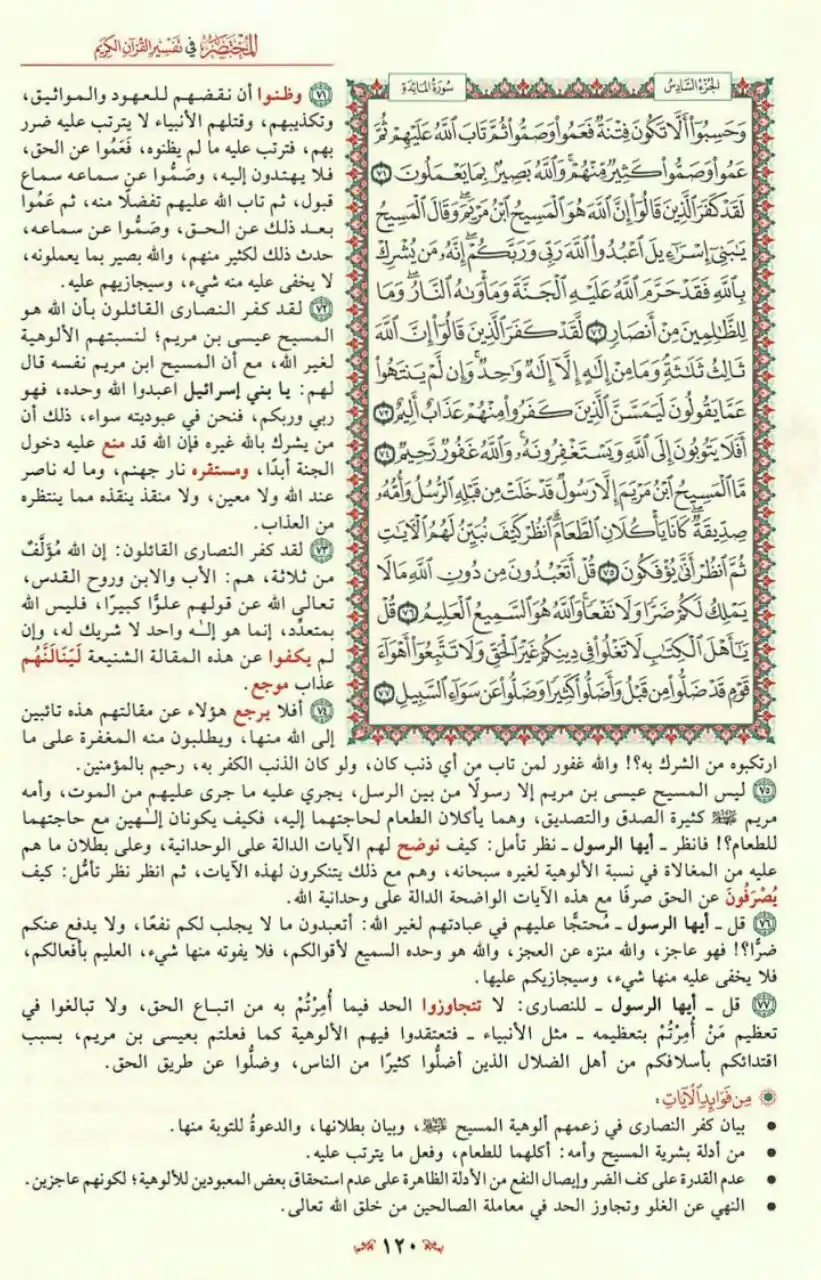 المختصر في تفسير القرآن الكريم
الجزء السادس
سورة المائدة
وَحَسِبُوٓا۟ أَلَّا تَكُونَ فِتْنَةٌ فَعَمُوا۟ وَصَمُّوا۟ ثُمَّ تَابَ ٱللَّهُ عَلَيْهِمْ ثُمَّ
عَمُوا۟ وَصَمُّوا۟ كَثِيرٌ مِّنْهُمْ ۚ وَٱللَّهُ بَصِيرٌۢ بِمَا يَعْمَلُونَ ٧١
لَقَدْ كَفَرَ ٱلَّذِينَ قَالُوٓا۟ إِنَّ ٱللَّهَ هُوَ ٱلْمَسِيحُ ٱبْنُ مَرْيَمَ ۖ وَقَالَ ٱلْمَسِيحُ
يَٰبَنِىٓ إِسْرَٰٓءِيلَ ٱعْبُدُوا۟ ٱللَّهَ رَبِّى وَرَبَّكُمْ ۖ إِنَّهُۥ مَن يُشْرِكْ
بِٱللَّهِ فَقَدْ حَرَّمَ ٱللَّهُ عَلَيْهِ ٱلْجَنَّةَ وَمَأْوَىٰهُ ٱلنَّارُ ۖ وَمَا
لِلظَّٰلِمِينَ مِنْ أَنصَارٍ ٧٢ لَّقَدْ كَفَرَ ٱلَّذِينَ قَالُوٓا۟ إِنَّ ٱللَّهَ
ثَالِثُ ثَلَٰثَةٍ ۘ وَمَا مِنْ إِلَٰهٍ إِلَّآ إِلَٰهٌ وَٰحِدٌ ۚ وَإِن لَّمْ يَنتَهُوا۟
عَمَّا يَقُولُونَ لَيَمَسَّنَّ ٱلَّذِينَ كَفَرُوا۟ مِنْهُمْ عَذَابٌ أَلِيمٌ ٧٣
أَفَلَا يَتُوبُونَ إِلَى ٱللَّهِ وَيَسْتَغْفِرُونَهُۥ ۚ وَٱللَّهُ غَفُورٌ رَّحِيمٌ ٧٤
مَّا ٱلْمَسِيحُ ٱبْنُ مَرْيَمَ إِلَّا رَسُولٌ قَدْ خَلَتْ مِن قَبْلِهِ ٱلرُّسُلُ وَأُمُّهُۥ
صِدِّيقَةٌ ۖ كَانَا يَأْكُلَانِ ٱلطَّعَامَ ۗ ٱنظُرْ كَيْفَ نُبَيِّنُ لَهُمُ ٱلْءَايَٰتِ
ثُمَّ ٱنظُرْ أَنَّىٰ يُؤْفَكُونَ ٧٥ قُلْ أَتَعْبُدُونَ مِن دُونِ ٱللَّهِ مَا لَا
يَمْلِكُ لَكُمْ ضَرًّا وَلَا نَفْعًا ۚ وَٱللَّهُ هُوَ ٱلسَّمِيعُ ٱلْعَلِيمُ ٧٦ قُلْ
يَٰٓأَهْلَ ٱلْكِتَٰبِ لَا تَغْلُوا۟ فِى دِينِكُمْ غَيْرَ ٱلْحَقِّ وَلَا تَتَّبِعُوٓا۟ أَهْوَآءَ
قَوْمٍ قَدْ ضَلُّوا۟ مِن قَبْلُ وَأَضَلُّوا۟ كَثِيرًا وَضَلُّوا۟ عَن سَوَآءِ ٱلسَّبِيلِ ٧٧
٧١ وظنوا أن نقضهم للعهود والمواثيق،
وتكذيبهم، وقتلهم الأنبياء لا يترتب عليه ضرر
بهم، فترتب عليه ما لم يظنوه، فَعَمُوا عن الحق،
فلا يهتدون إليه، وصَمُّوا عن سماعه سماع
قبول، ثم تاب الله عليهم تفضلًا منه، ثم عَمُوا
بعد ذلك عن الحق، وصَمُّوا عن سماعه،
حدث ذلك لكثير منهم، والله بصير بما يعملونه،
لا يخفى عليه منه شيء، وسيجازيهم عليه.
٧٢ لقد كفر النصارى القائلون بأن الله هو
المسيح عيسى بن مريم؛ لنسبتهم الألوهية
لغير الله، مع أن المسيح ابن مريم نفسه قال
لهم: يا بني إسرائيل اعبدوا الله وحده، فهو
ربي وربكم، فنحن في عبوديته سواء، ذلك أن
من يشرك بالله غيره فإن الله قد منع عليه دخول
الجنة أبدًا، ومستقره نار جهنم، وما له ناصر
عند الله ولا معين، ولا منقذ ينقذه مما ينتظره
من العذاب.
٧٣ لقد كفر النصارى القائلون: إن الله مُؤَلَّفٌ
من ثلاثة، هم: الأب والابن وروح القدس،
تعالى الله عن قولهم علوًّا كبيرًا، فليس الله
بمتعدِّد، إنما هو إلـٰه واحد لا شريك له، وإن
لم يكفوا عن هذه المقالة الشنيعة لَيَنَالَنَّهُم
عذاب موجع.
٧٤ أفلا يرجع هؤلاء عن مقالتهم هذه تائبين
إلى الله منها، ويطلبون منه المغفرة على ما
ارتكبوه من الشرك به؟! والله غفور لمن تاب من أي ذنب كان، ولو كان الذنب الكفر به، رحيم بالمؤمنين.
٧٥ ليس المسيح عيسى بن مريم إلا رسولًا من بين الرسل، يجري عليه ما جرى عليهم من الموت، وأمه
مريم كثيرة الصدق والتصديق، وهما يأكلان الطعام لحاجتهما إليه، فكيف يكونان إلـٰهين مع حاجتهما
للطعام؟! فانظر ـ أيها الرسول ـ نظر تأمل: كيف نوضح لهم الآيات الدالة على الوحدانية، وعلى بطلان ما هم
عليه من المغالاة في نسبة الألوهية لغيره سبحانه، وهم مع ذلك يتنكرون لهذه الآيات، ثم انظر نظر تأمُّل: كيف
يُصْرَفُونَ عن الحق صرفًا مع هذه الآيات الواضحة الدالة على وحدانية الله.
٧٦ قل ـ أيها الرسول ـ مُحتجًّا عليهم في عبادتهم لغير الله: أتعبدون ما لا يجلب لكم نفعًا، ولا يدفع عنكم
ضرًّا؟! فهو عاجز، والله منزه عن العجز، والله هو وحده السميع لأقوالكم، فلا يفوته منها شيء، العليم بأفعالكم،
فلا يخفى عليه منها شيء، وسيجازيكم عليها.
٧٧ قل ـ أيها الرسول ـ للنصارى: لا تتجاوزوا الحد فيما أُمِرْتُمْ به من اتباع الحق، ولا تبالغوا في
تعظيم مَنْ أُمِرْتُمْ بتعظيمه ـ مثل الأنبياء ـ فتعتقدوا فيهم الألوهية كما فعلتم بعيسى بن مريم، بسبب
اقتدائكم بأسلافكم من أهل الضلال الذين أضلُّوا كثيرًا من الناس، وضلُّوا عن طريق الحق.
من فوائد الآيات:
• بيان كفر النصارى في زعمهم ألوهية المسيح ﷺ، وبيان بطلانها، والدعوةُ للتوبة منها.
• من أدلة بشرية المسيح وأمه: أكلهما للطعام، وفعل ما يترتب عليه.
• عدم القدرة على كف الضر وإيصال النفع من الأدلة الظاهرة على عدم استحقاق بعض المعبودين للألوهية؛ لكونهم عاجزين.
• النهي عن الغلو وتجاوز الحد في معاملة الصالحين من خلق الله تعالى.
١٢٠